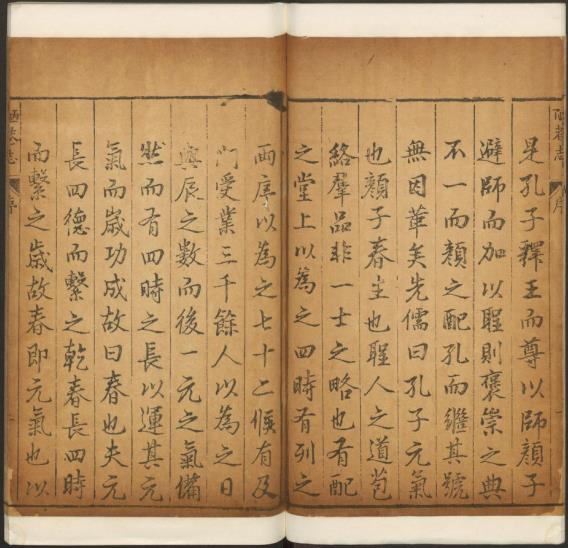 是孔子釋王而尊以師顏子
避師而加以聖則褒崇之典
不一而顏之配孔而繼其號
無因革矣先儒曰孔子元氣
也顏子春生也聖人之道苞
絡羣品非一士之略也有配
之堂上以為之四時有列之
兩序以為之七十二候有及
門受業三千餘人以為之日
與辰之數而後一元之氣備
然而有四時之長以運其元
氣而歲功成故曰春也夫元
長四德而繫之乾春長四時
而繫之歲故春即元氣也以
志
序